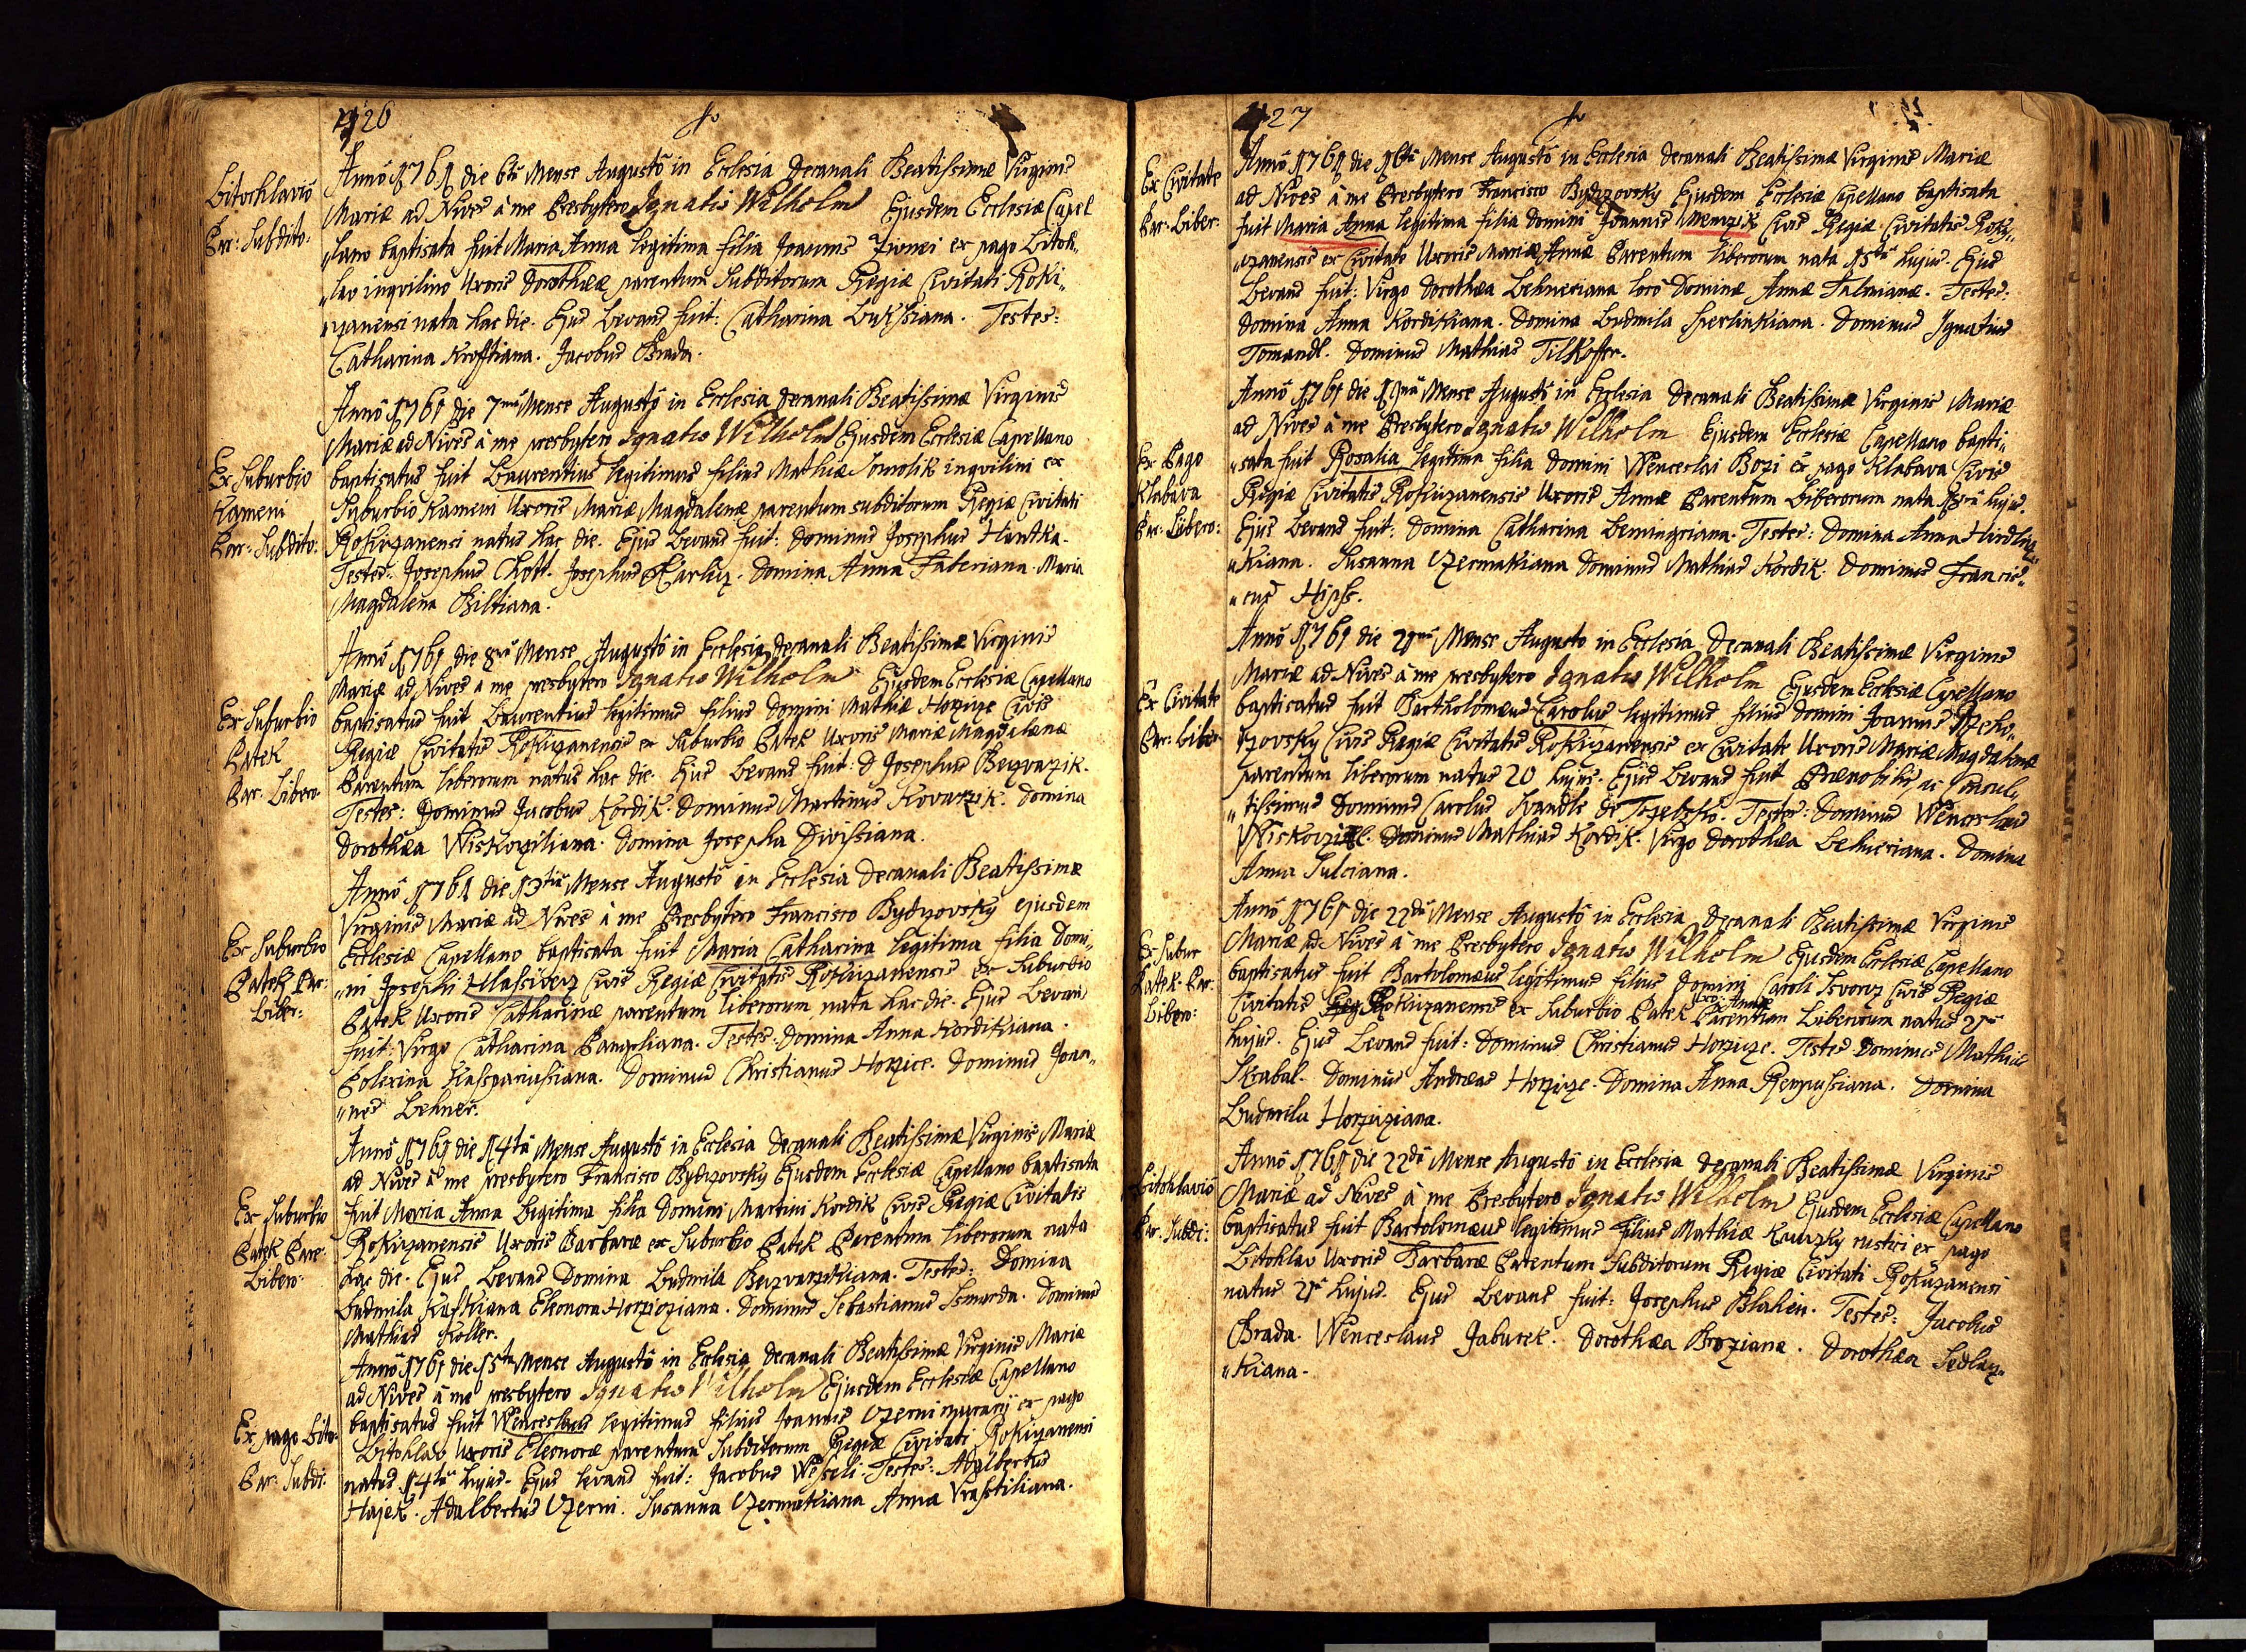 426
Litochlaviô
Par: Subdito:
Annô 1761 die 6tâ Mense Augustô in Ecclesia Decanali Beatissimæ Virginis
Mariæ ad Nives à me Presbytero Ignatio Wilhelm Ejusdem Ecclesiæ Capel
„lano baptisata fuit Maria Anna legitima filia Joannis ex pago Litoh„
„lav inqvilino Uxoris Dorothææ parentum Subditorum Regiæ Civitati Roki„
„zanensi nata hac die. Ejus Levans fuit: Catharina Lukssiana. Testes:
Catharina Krofftiana. Jacobus Brada.
Ex Suburbio
Kameni
Par: Subdito:
Annô 1761 die 7mâ Mense Augustô in Ecclesia Decanali Beatissimæ Virginis
Mariæ ad Nives à me presbytero Ignatio Wilhelm Ejusdem Ecclesiæ Capellano
baptisatus fuit Laurentius legitimus filius Mathiæ Somolik inqvilini ex
Suburbiô Kameni Uxoris Mariæ Magdalenæ parentum subditorum Regiæ Civitati
Rokizanensi natus hac die. Ejus Levans fuit: Dominus Josephus Hrutka.
Testes: Josephus Chott. Josephus Domina Anna Faberiana. Maria
Magdalena Biltiana.
Ex Suburbio
Patek
Par: Libero
Annô 1761 die 8vâ Mense Augustô in Ecclesia Decanali Beatissimæ Virginis
Mariæ ad Nives à me presbytero Ignatio Wilhelm Ejusdem Ecclesiæ Capellano
baptisatus fuit Laurentius legitimus filius Domini Mathiæ Horzize Civis
Regiæ Civitatis Rokizanensis ex Suburbio Patek Uxoris Mariæ Magdalenæ
Parentum liberorum natus hac die. Ejus Levans fuit: D Josephus Bezvarzik.
Testes: Dominus Jacobus Kordik. Dominus Martinus Kovarzik. Domina
Dorothæa Wiskoziliana. Domina Josepha Divissiana.
Ex Suburbio
Patek Par:
Liber:
Annô 1761 die 13tiâ Mense Augustô in Ecclesia Decanali Beatissimæ
Virginis Mariæ ad Nives à me Presbytero Francisco Bydzovsky ejusdem
Ecclesiæ Capellano baptisata fuit Maria Catharina legitima filia Domi„
„ni Josephi Hlassivecz Civis Regiæ Civitatis Rokizanensis ex Suburbio
Patek Uxoris Catharinæ parentum liberorum nata hac die. Ejus Levans
fuit: Virgo Catharina Panzeliana. Testes: Domina Anna Kordikiana.
Polexina Kasspariussiana. Dominus Christianus Horzice. Dominus Joan„
„nes Lehner.
Ex Suburbio
Patek Pare:
Libero:
Annô 1761 die 14tâ Mense Augustô in Ecclesia Decanali Beatissimæ Virginis Mariæ
ad Nives à me presbytero Francisco Bydzovsky Ejusdem Ecclesiæ Capellano baptisata
fuit Maria Anna Legitima filia Domini Martini Kordik Civis Regiæ Civitatis
Rokizanensis Uxoris Barbaræ ex Suburbio Patek Parentum liberorum nata
hac die. Ejus Levans Domina Ludmila Bezvarzikiana. Testes: Domina
Ludmila Eleonora Horziziana. Dominus Sebastianus Ssmarda. Dominus
Mathias Koller.
Ex pago Lito:
Par: Subdi:
Annô 1761 die 15tâ Mense Augustô in Ecclesia Decanali Beatissimæ Virginis Mariæ
ad Nives à me presbytero Ignatio Wilhelm Ejusdem Ecclesiæ Capellano
baptisatus fuit Wenceslaus legitimus filius Joannis Czerni ex pago
Litohlav Uxoris Eleonoræ parentum Subditorum Regiæ Civitati Rokizanensi
natus 14tâ hujus. Ejus levans fuit: Jacobus Wesseli. Testes: Adalbertus
Hajek. Adalbertus Czerni. Susanna Czermakiana Anna Vrasstiliana.
427
Ex Civitate
Par: Liber:
Annô 1761 die 16tâ Mense Augustô in Ecclesia Decanali Beatissimæ Virginis Mariæ
ad Nives à me Presbytero Francisco Bydzovsky Ejusdem Ecclesiæ Capellano baptisata
fuit Maria Anna legitima filia Domini Joannis Menzik Civis Regiæ Civitatis Roky„
„czanensis ex Civitate Uxoris Mariæ Annæ Parentum liberorum nata 15tâ hujus. Ejus
Levans fuit: Virgo Dorothæa Lehneriana locô Dominæ Annæ Testes:
Domina Anna Kordikiana. Domina Ludmila Sperlinkiana. Dominus Ignatius
Tomandl. Dominus Mathias Tilkoffer.
Ex Pago
Klabava
Par: Libero:
Annô 1761 die Mense Augustô in Ecclesia Decanali Beatissimæ Virginis Mariæ
ad Nives à me Presbytero Ignatio Wilhelm Ejusdem Ecclesiæ Capellano bapti„
„sata fuit Rosalia legitima filia Domini Wenceslai Bozi ex pago Klabava Civis
Regiæ Civitatis Rokizanensis Uxoris Annæ Parentum Liberorum nata hujus.
Ejus Levans fuit: Domina Catharina Testes: Domina Anna
„kiana. Susanna Czermakiana Dominus Mathias Kordik. Dominus Francis„
„cus Hipss.
Ex Civitate
Par: Liber
Annô 1761 die 21mâ Mense Augusto in Ecclesia Decanali Beatissimæ Virginis
Mariæ ad Nives à me presbytero Ignatio Wilhelm Ejusdem Ecclesiæ Capellano
baptisatus fuit Bartholomæus Carolus legitimus filius Domini Joannis Rzeho„
rzovsky Civis Regiæ Civitatis Rokizanensis ex Civitate Uxoris Mariæ Magdalenæ
parentum liberorum natus 20 hujus. Ejus Levans fuit Prænobilis, ac
„tissimus Dominus Carolus Testes: Dominus Wenceslaus
Wiskozill. Dominus Mathias Kordik. Virgo Dorothæa Lehneriana. Domina
Anna Sulciana.
Ex Subur
Patek Par:
Libero:
Annô 1761 die 22dâ Mense Augustô in Ecclesia Decanali Beatissimæ Virginis
Mariæ ad Nives à me Presbytero Ignatio Wilhelm Ejusdem Ecclesiæ Capellano
baptisatus fuit Bartolomæus legitimus filius Domini Caroli Civis Regiæ
Civitatis Rokizanensis ex Suburbio Patek Uxo: Annæ Parentum Liberorum natus 21â
hujus. Ejus Levans fuit: Dominus Christianus Horzize. Testes Dominus Mathias
Skabal. Dominus Andræas Horzize. Domina Anna Domina
Ludmila Horziziana.
Litohlaviô
Par: Subdi:
Annô 1761 die 22dâ Mense Augustô in Ecclesia Decanali Beatissimæ Virginis
Mariæ ad Nives à me Presbytero Ignatio Wilhelm Ejusdem Ecclesiæ Capellano
baptisatus fuit Bartolomæus legitimus filius Mathiæ rustici ex pago
Litohlav Uxoris Barbaræ Parentum Subditorum Regiæ Civitati Rokizanensi
natus 21â hujus. Ejus Levans fuit: Josephus Blahin. Testes: Jacobus
Brada. Wenceslaus Jaburek. Dorothæa Broziana. Dorothæa Sedlacz„
„kiana.